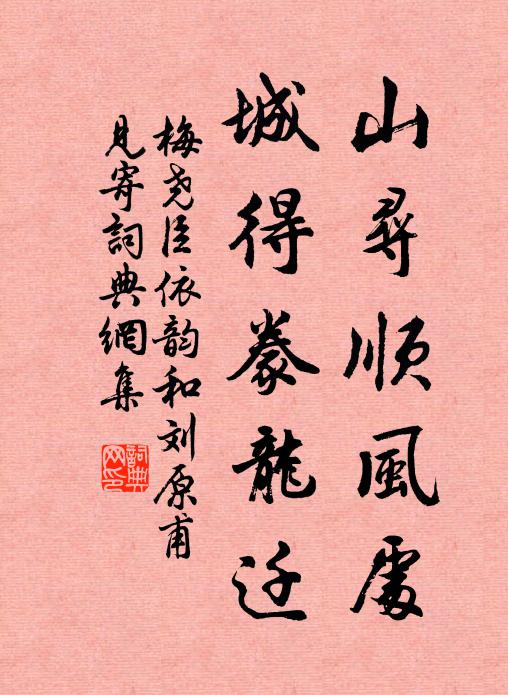 山尋順風處
城得豢龍迁
梅尧臣依韵和刘原甫
見寄詞典網集
詞典网印